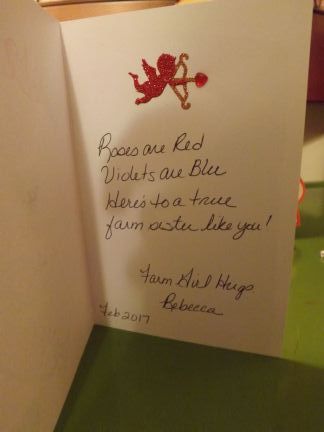 Roses are Red
Violets are Blue
Here's to a true
farm sister like you!
Farm Girl Hugs
Rebecca
Feb 2017